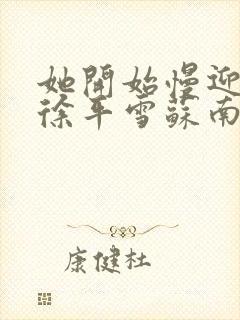 她開始慢迎
徐平雪蘇南
康健杜